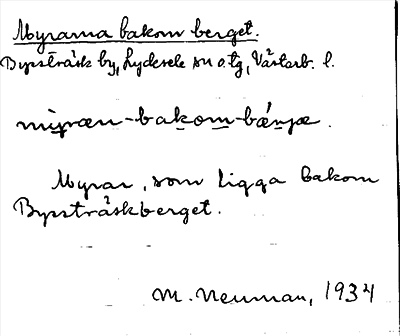 Myrarna bakom berget.
Bypsträsk by, Lycksele sn o. tg, Västerb. l.
myræn-bakom-bǽrjæ.
Myrar, som ligga bakom
Bypsträskberget.
M. Neuman, 1934